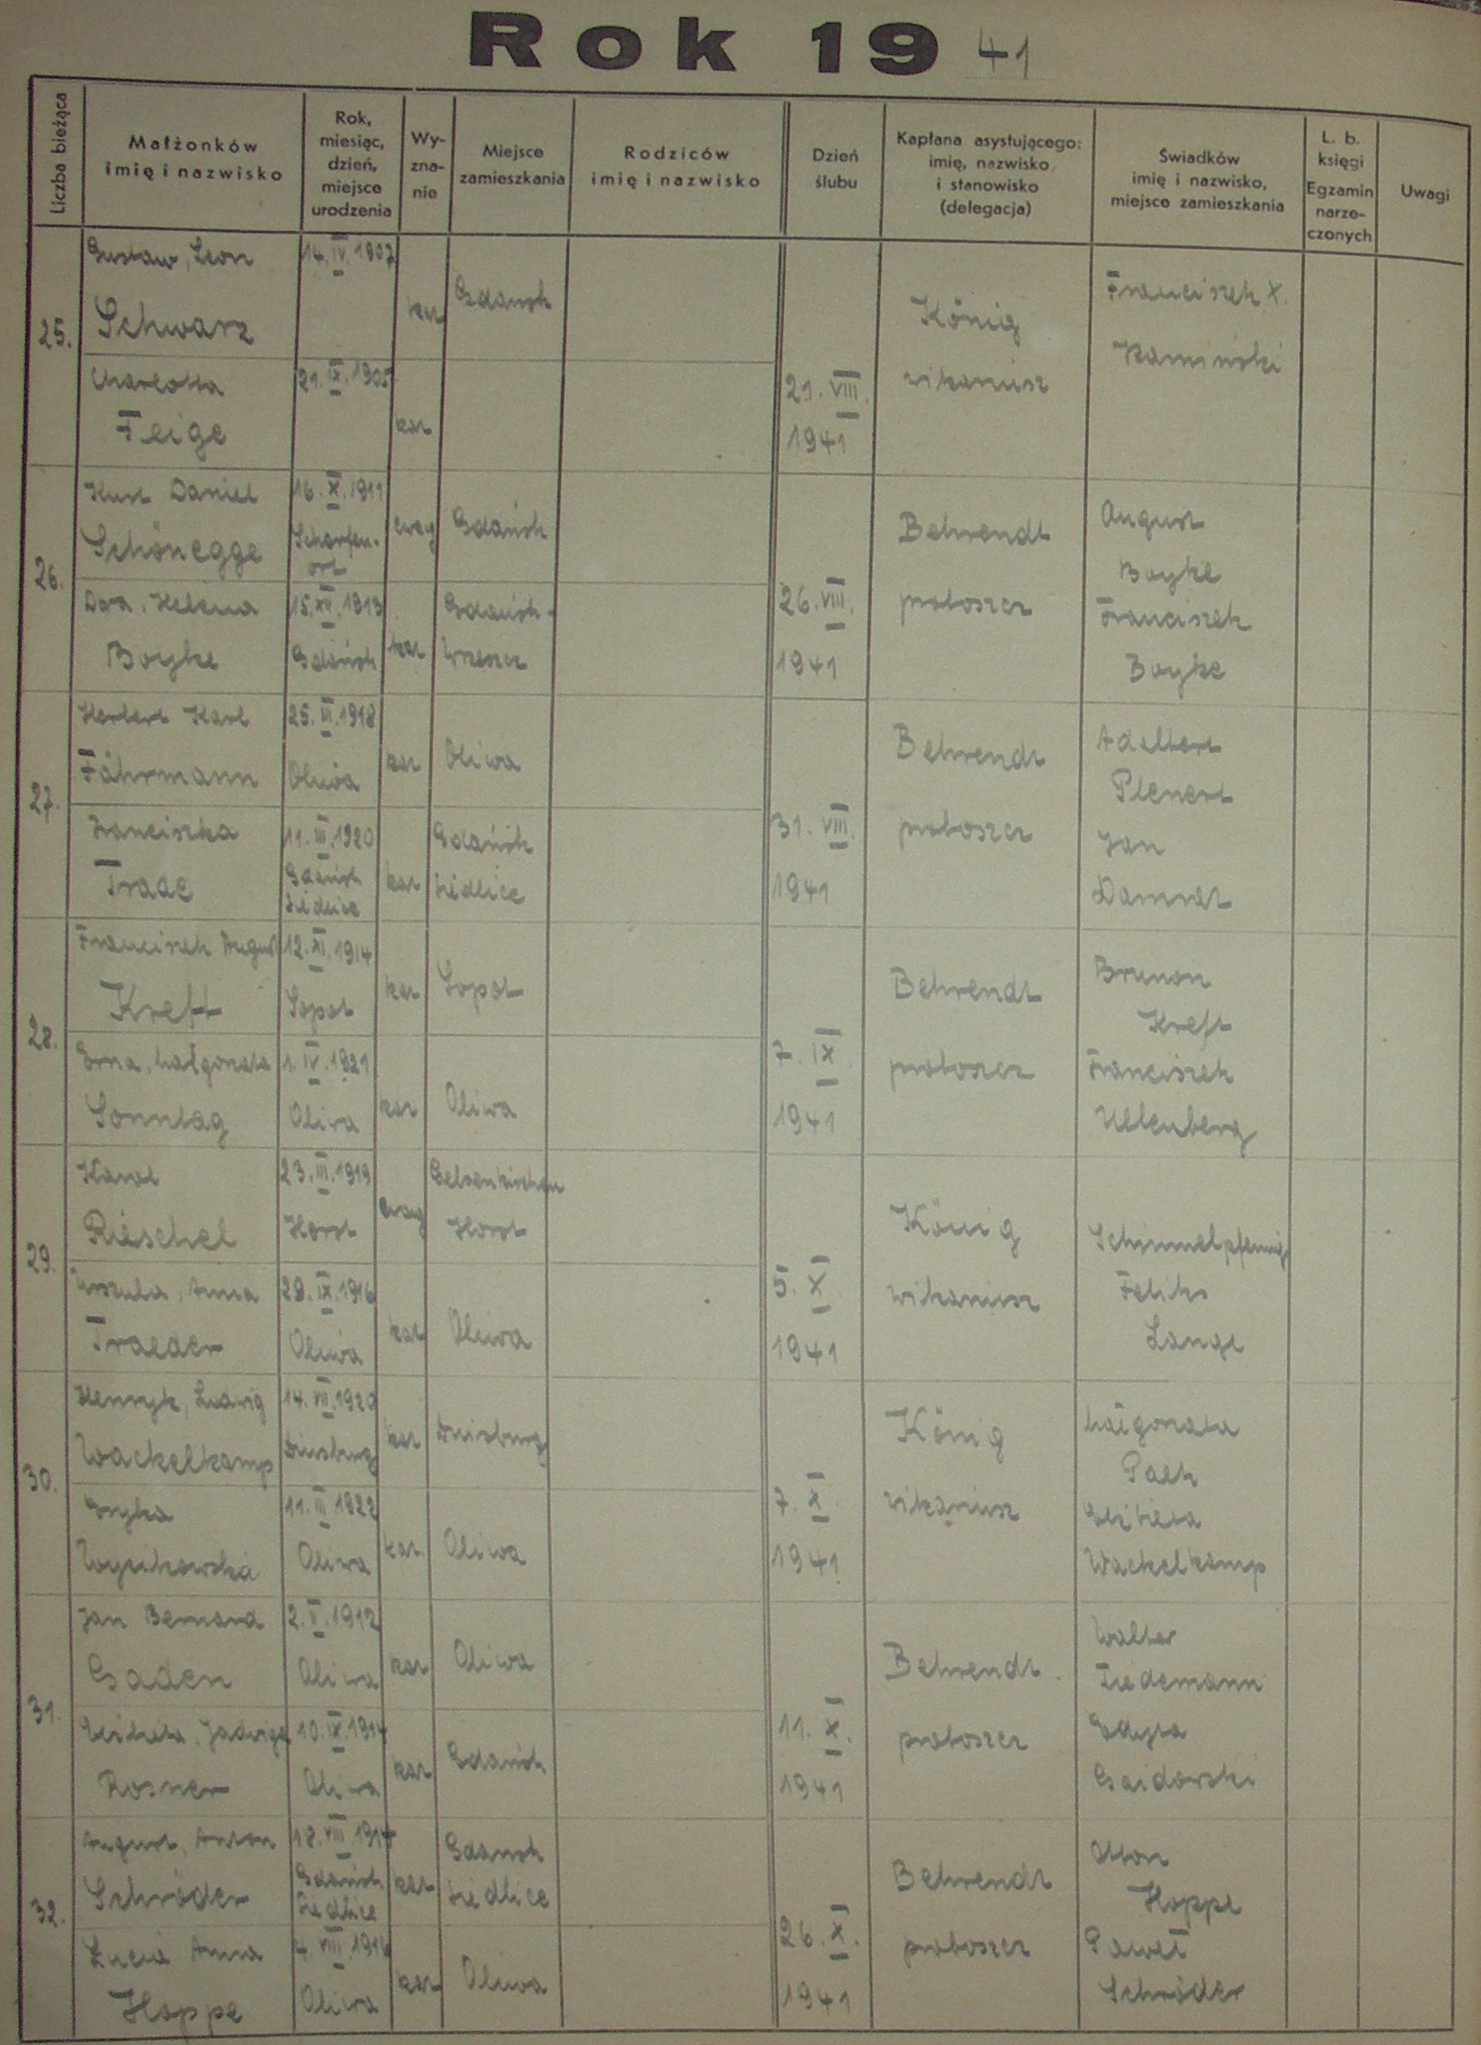 Rok 19 41
Liczba bieżąca
Małżonków
imię i nazwisko
Rok,
miesiąc,
dzień,
miejsce
urodzenia
Wy-
zna-
nie
Miejsce
zamieszkania
Rodziców
imię i nazwisko
Dzień
ślubu
Kapłana asystującego:
imię, nazwisko
i stanowisko
(delegacja)
Świadków
imię i nazwisko,
miejsce zamieszkania
L. b.
księgi
Egzamin
narze-
czonych
Uwagi
25.
Gustaw, Leon
Schwarz
14. IV. 1907
kat
Gdańsk
Charlotta
Feige
21. IX. 1905
kat
21. VIII.
1941
König
wikariusz
Franciszek X.
Kamiński
26.
Kurt Daniel
Schönegge
16. X. 1911
Scharfen-
ort
ewag
Gdańsk
Dora, Helena
Boyke
15. XII. 1913
Gdańsk
kat
Gdańsk-
Wrzeszcz
26. VIII.
1941
Behrendt
proboszcz
August
Boyke
Franciszek
Boyke
27.
Herbert Karl
Fährmann
25. III. 1918
Oliwa
kat
Oliwa
Franciszka
Trade
11. III. 1920
Gdańsk
Siedlice
kat
Gdańsk
Siedlice
31. VIII.
1941
Behrendt
proboszcz
Adalbert
Plenert
Jan
Damrat
28.
Franciszek August
Kreft
12. XI. 1914
Sopot
kat
Sopot
Erna, Małgorzata
Sonntag
1. IV. 1921
Oliwa
kat
Oliwa
7. IX.
1941
Behrendt
proboszcz
Brunon
Kreft
Franciszek
Uhlenberg
29.
Karol
Rieschel
23. III. 1919
Horst
ewag
Gelsenkirchen
Horst
Urszula, Anna
Traeder
29. IX. 1916
Oliwa
kat
Oliwa
5. X.
1941
König
wikariusz
Schimmelpfennig
Feliks
Lange
30.
Henryk, Ludwig
Wackelkamp
14. VII. 1920
Duisburg
kat
Duisburg
Eryka
Wysikowska
11. III. 1922
Oliwa
kat.
Oliwa
7. X.
1941
König
wikariusz
Małgorzata
Paeh
Elżbieta
Wackelkamp
31.
Jan Bernard
Gaden
2. V. 1912
Oliwa
kat
Oliwa
Elżbieta, Jadwiga
Rosner
10. IX. 1914
Oliwa
kat
Gdańsk
11. X.
1941
Behrendt
proboszcz
Walter
Tiedemann
Edyta
Gaidowski
32.
August, Anton
Schröder
18. VIII. 1914
Gdańsk
Siedlice
kat
Gdańsk
Siedlice
Lucia Anna
Hoppe
4. VIII. 1916
Oliwa
kat
Oliwa
26. X.
1941
Behrendt
proboszcz
Otton
Hoppe
Paweł
Schröder